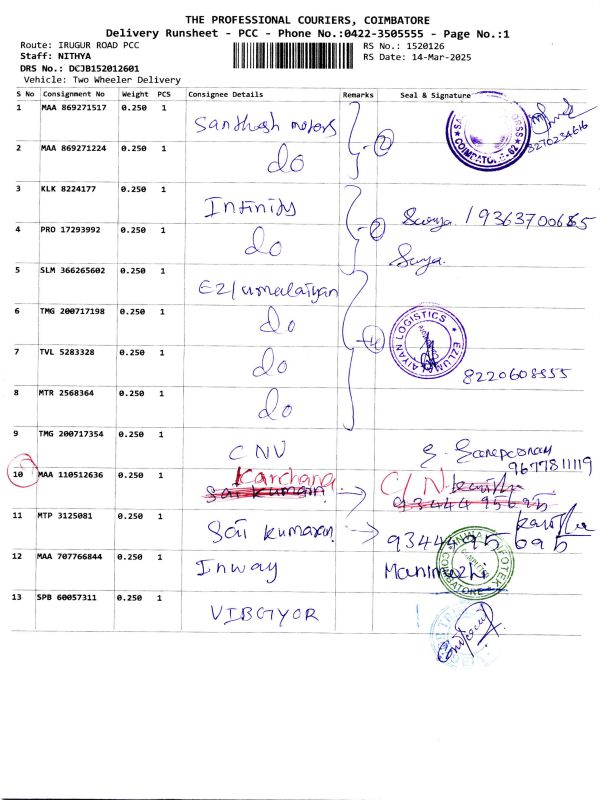 THE PROFESSIONAL COURIERS, COIMBATORE
Delivery Runsheet - PCC - Phone No.:0422-3505555 - Page No.:1
Route: IRUGUR ROAD PCC RS No.: 1520126
Staff: NITHYA RS Date: 14-Mar-2025
DRS No.: DCJB152012601
Vehicle: Two Wheeler Delivery
S No Consignment No Weight PCS Consignee Details Remarks Seal & Signature
1 MAA 869271517 0.250 1 Santhosh motors
2 MAA 869271224 0.250 1 do 2 COIMBATORE-62 8270234616
3 KLK 8224177 0.250 1 Infinity
4 PRO 17293992 0.250 1 do 2 Surya / 9363700685
5 SLM 366265602 0.250 1 EZ/umalaiyan Surya.
6 TMG 200717198 0.250 1 do
7 TVL 5283328 0.250 1 do 4 EZLUMALAIYAN LOGISTICS
8 MTR 2568364 0.250 1 do 8220608555
9 TMG 200717354 0.250 1 CNV 9677811119
10 MAA 110512636 0.250 1 Karchana Sai kumaran C/N. 9344495695
11 MTP 3125081 0.250 1 Sai kumaran 9344495695
12 MAA 707766844 0.250 1 Inway Manimozhi INWAY INFOTEK COIMBATORE
13 SPB 60057311 0.250 1 VIBGYOR